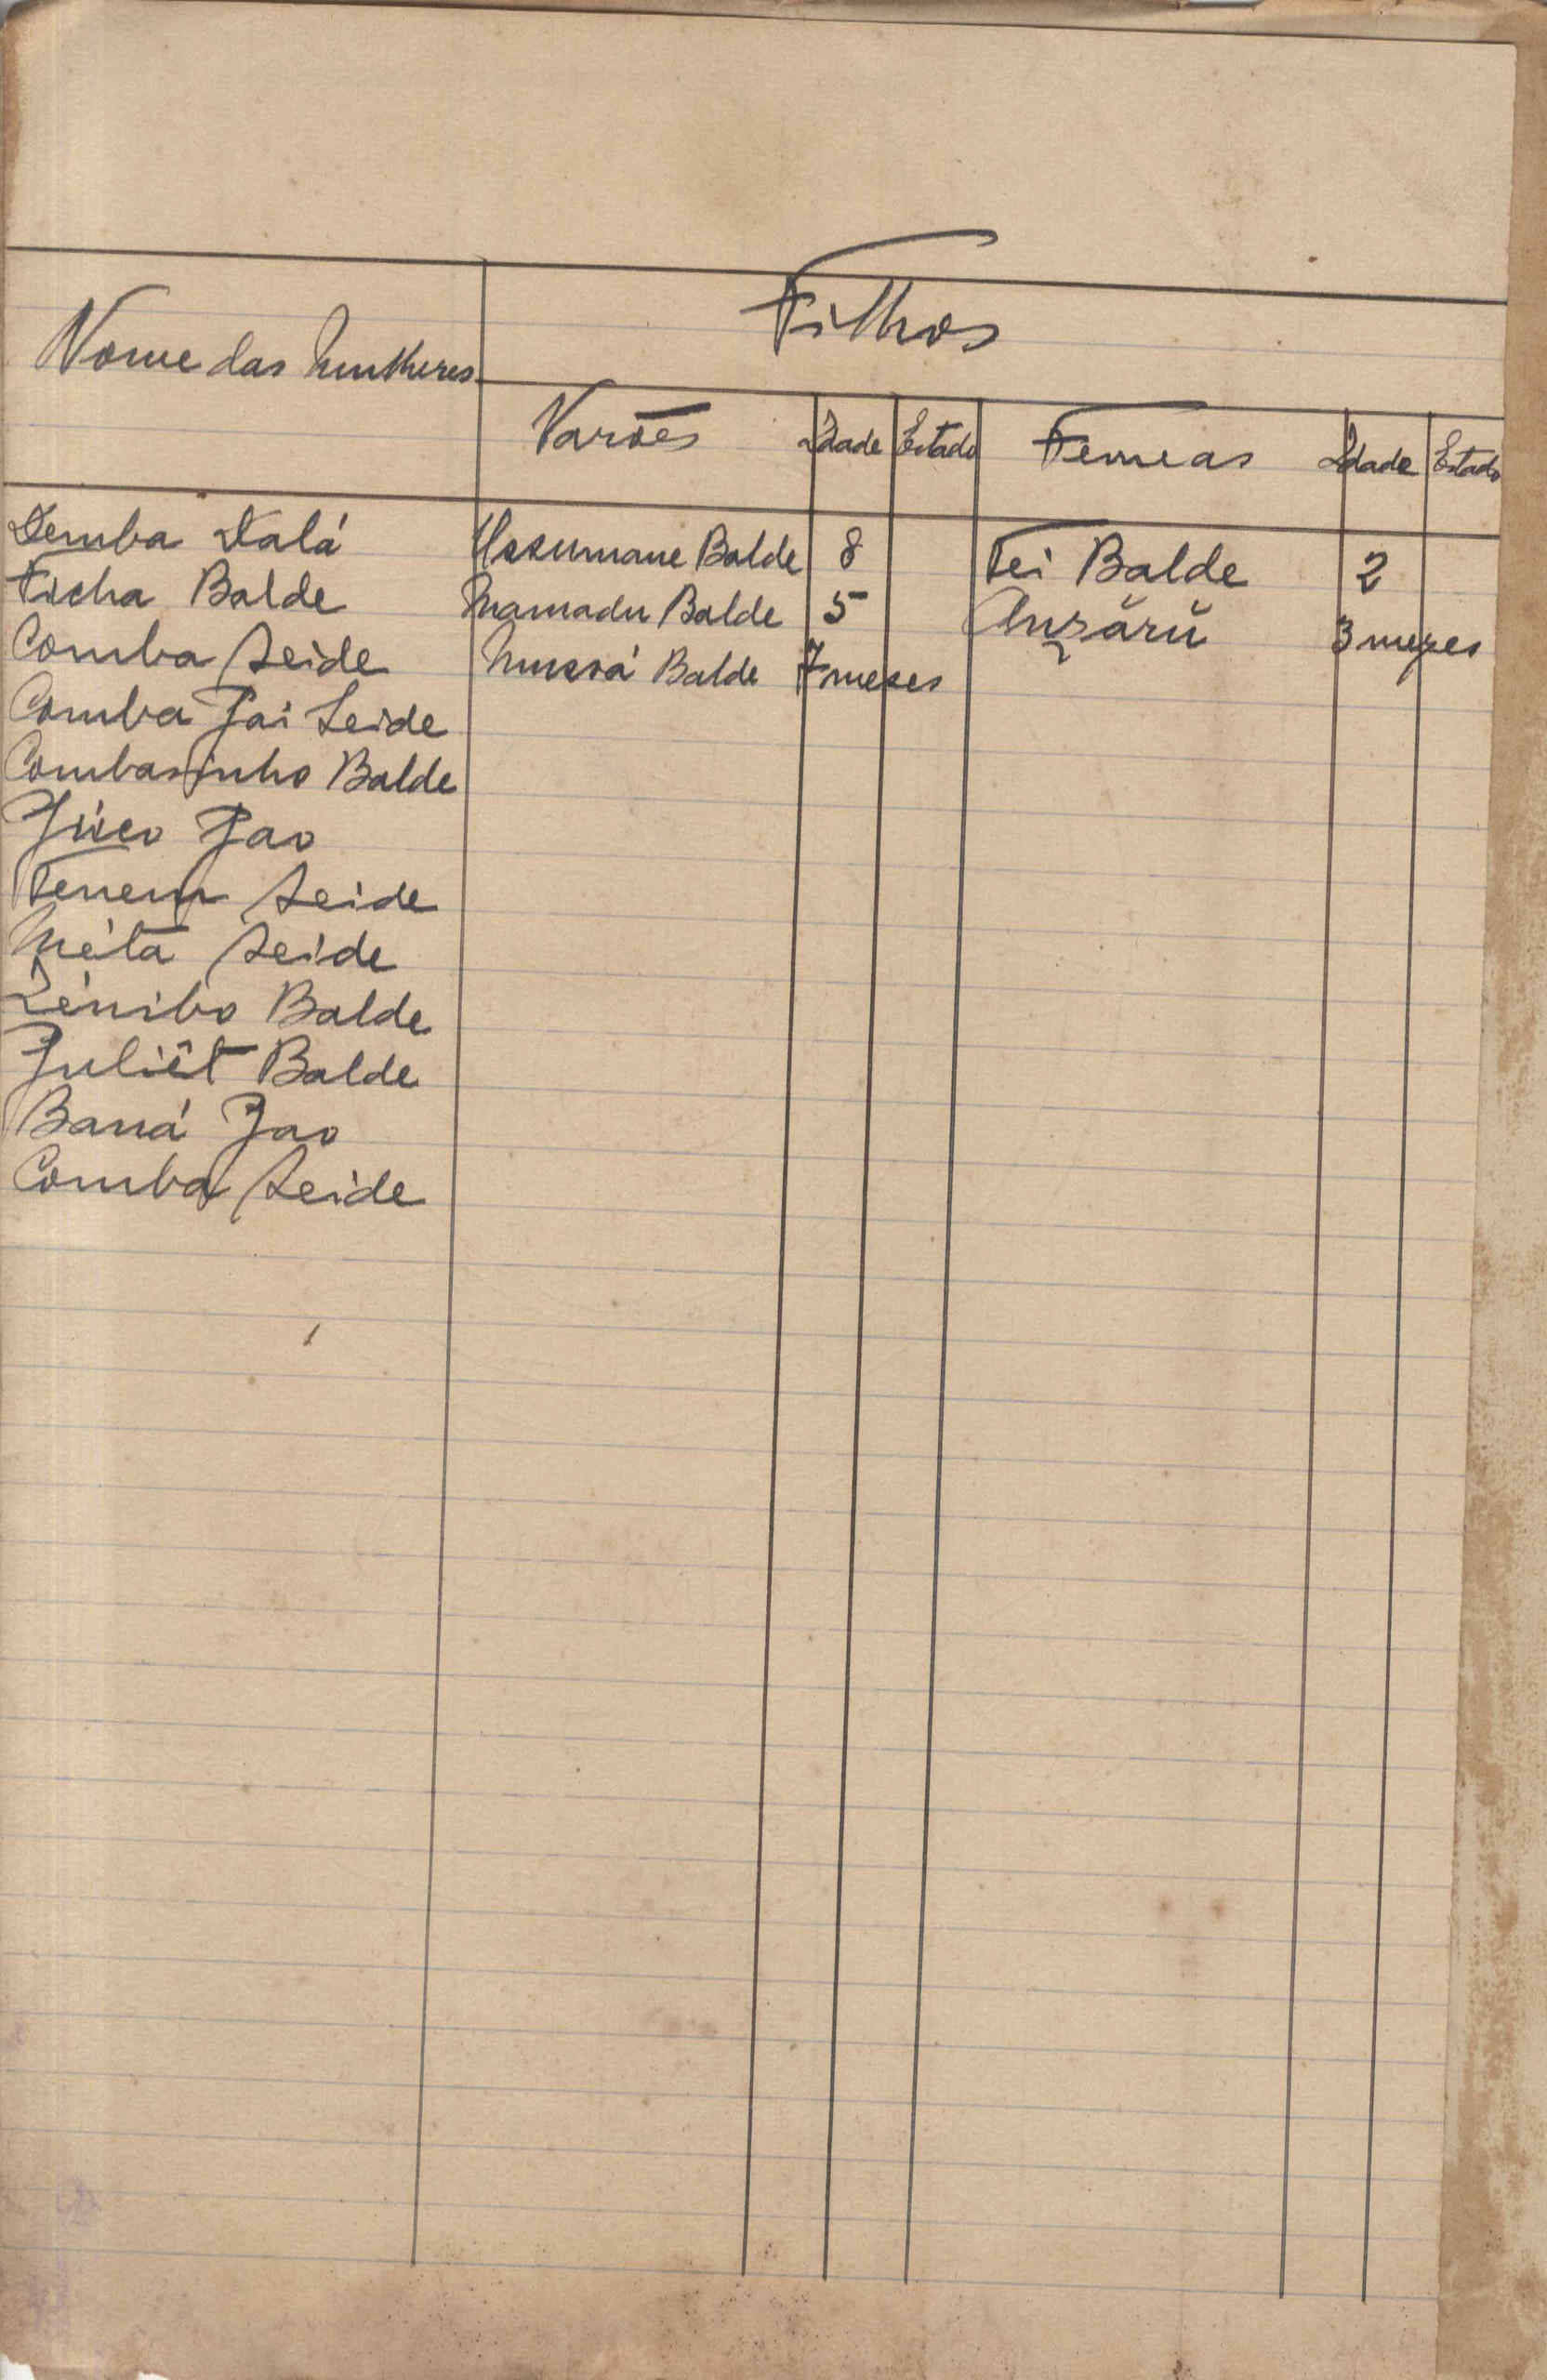 Filhos
Nome das Mulheres
Varões Idade Estado Femeas Idade Estado
Demba Dalá Ussumane Balde 8 Tei Balde 2
Ficha Balde Mamadu Balde 5 3 mezes
Comba Seide Mussá Balde 7 meses
Comba Jai Seide
Combasinho Balde
Jao
Tenem Seide
Méta Seide
Balde
Juliêt Balde
Baná Jao
Comba Seide